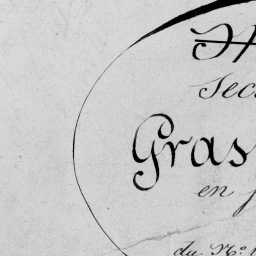 Sec
Gras
en
du N°.